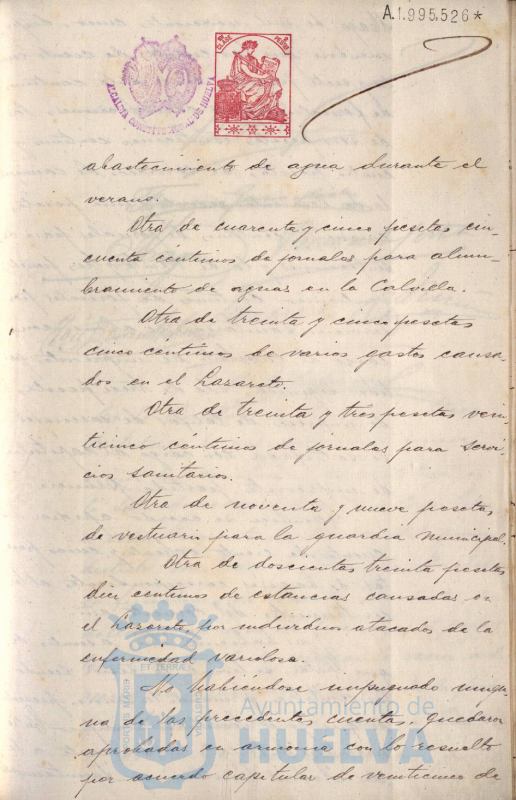 A.1.995,526*
ALCALDIA CONSTITUCIONAL DE HUELVA
abastecimiento de agua durante el
verano.
Otra de cuarenta y cinco pesetas cin-
cuenta céntimos de jornales para alum-
bramiento de aguas en la Calvilla.
Otra de treinta y cinco pesetas
cinco céntimos de varios gastos causa-
dos en el Lazareto.
Otra de treinta y tres pesetas vein-
ticinco céntimos de jornales para servi-
cios sanitarios.
Otra de noventa y nueve pesetas,
de vestuario para la guardia municipal.
Otra de doscientas treinta pesetas
diez centimos de estancias causadas en
el Lazareto, por individuos atacados de la
enfermedad variolosa.
No habiéndose impugnado ningu-
na de las precedentes cuentas, quedaron
aprobadas en armonia con lo resuelto
por acuerdo capitular de veinticinco de
PORTUS MARIS
ET TERRÆ
Ayuntamiento de
HUELVA